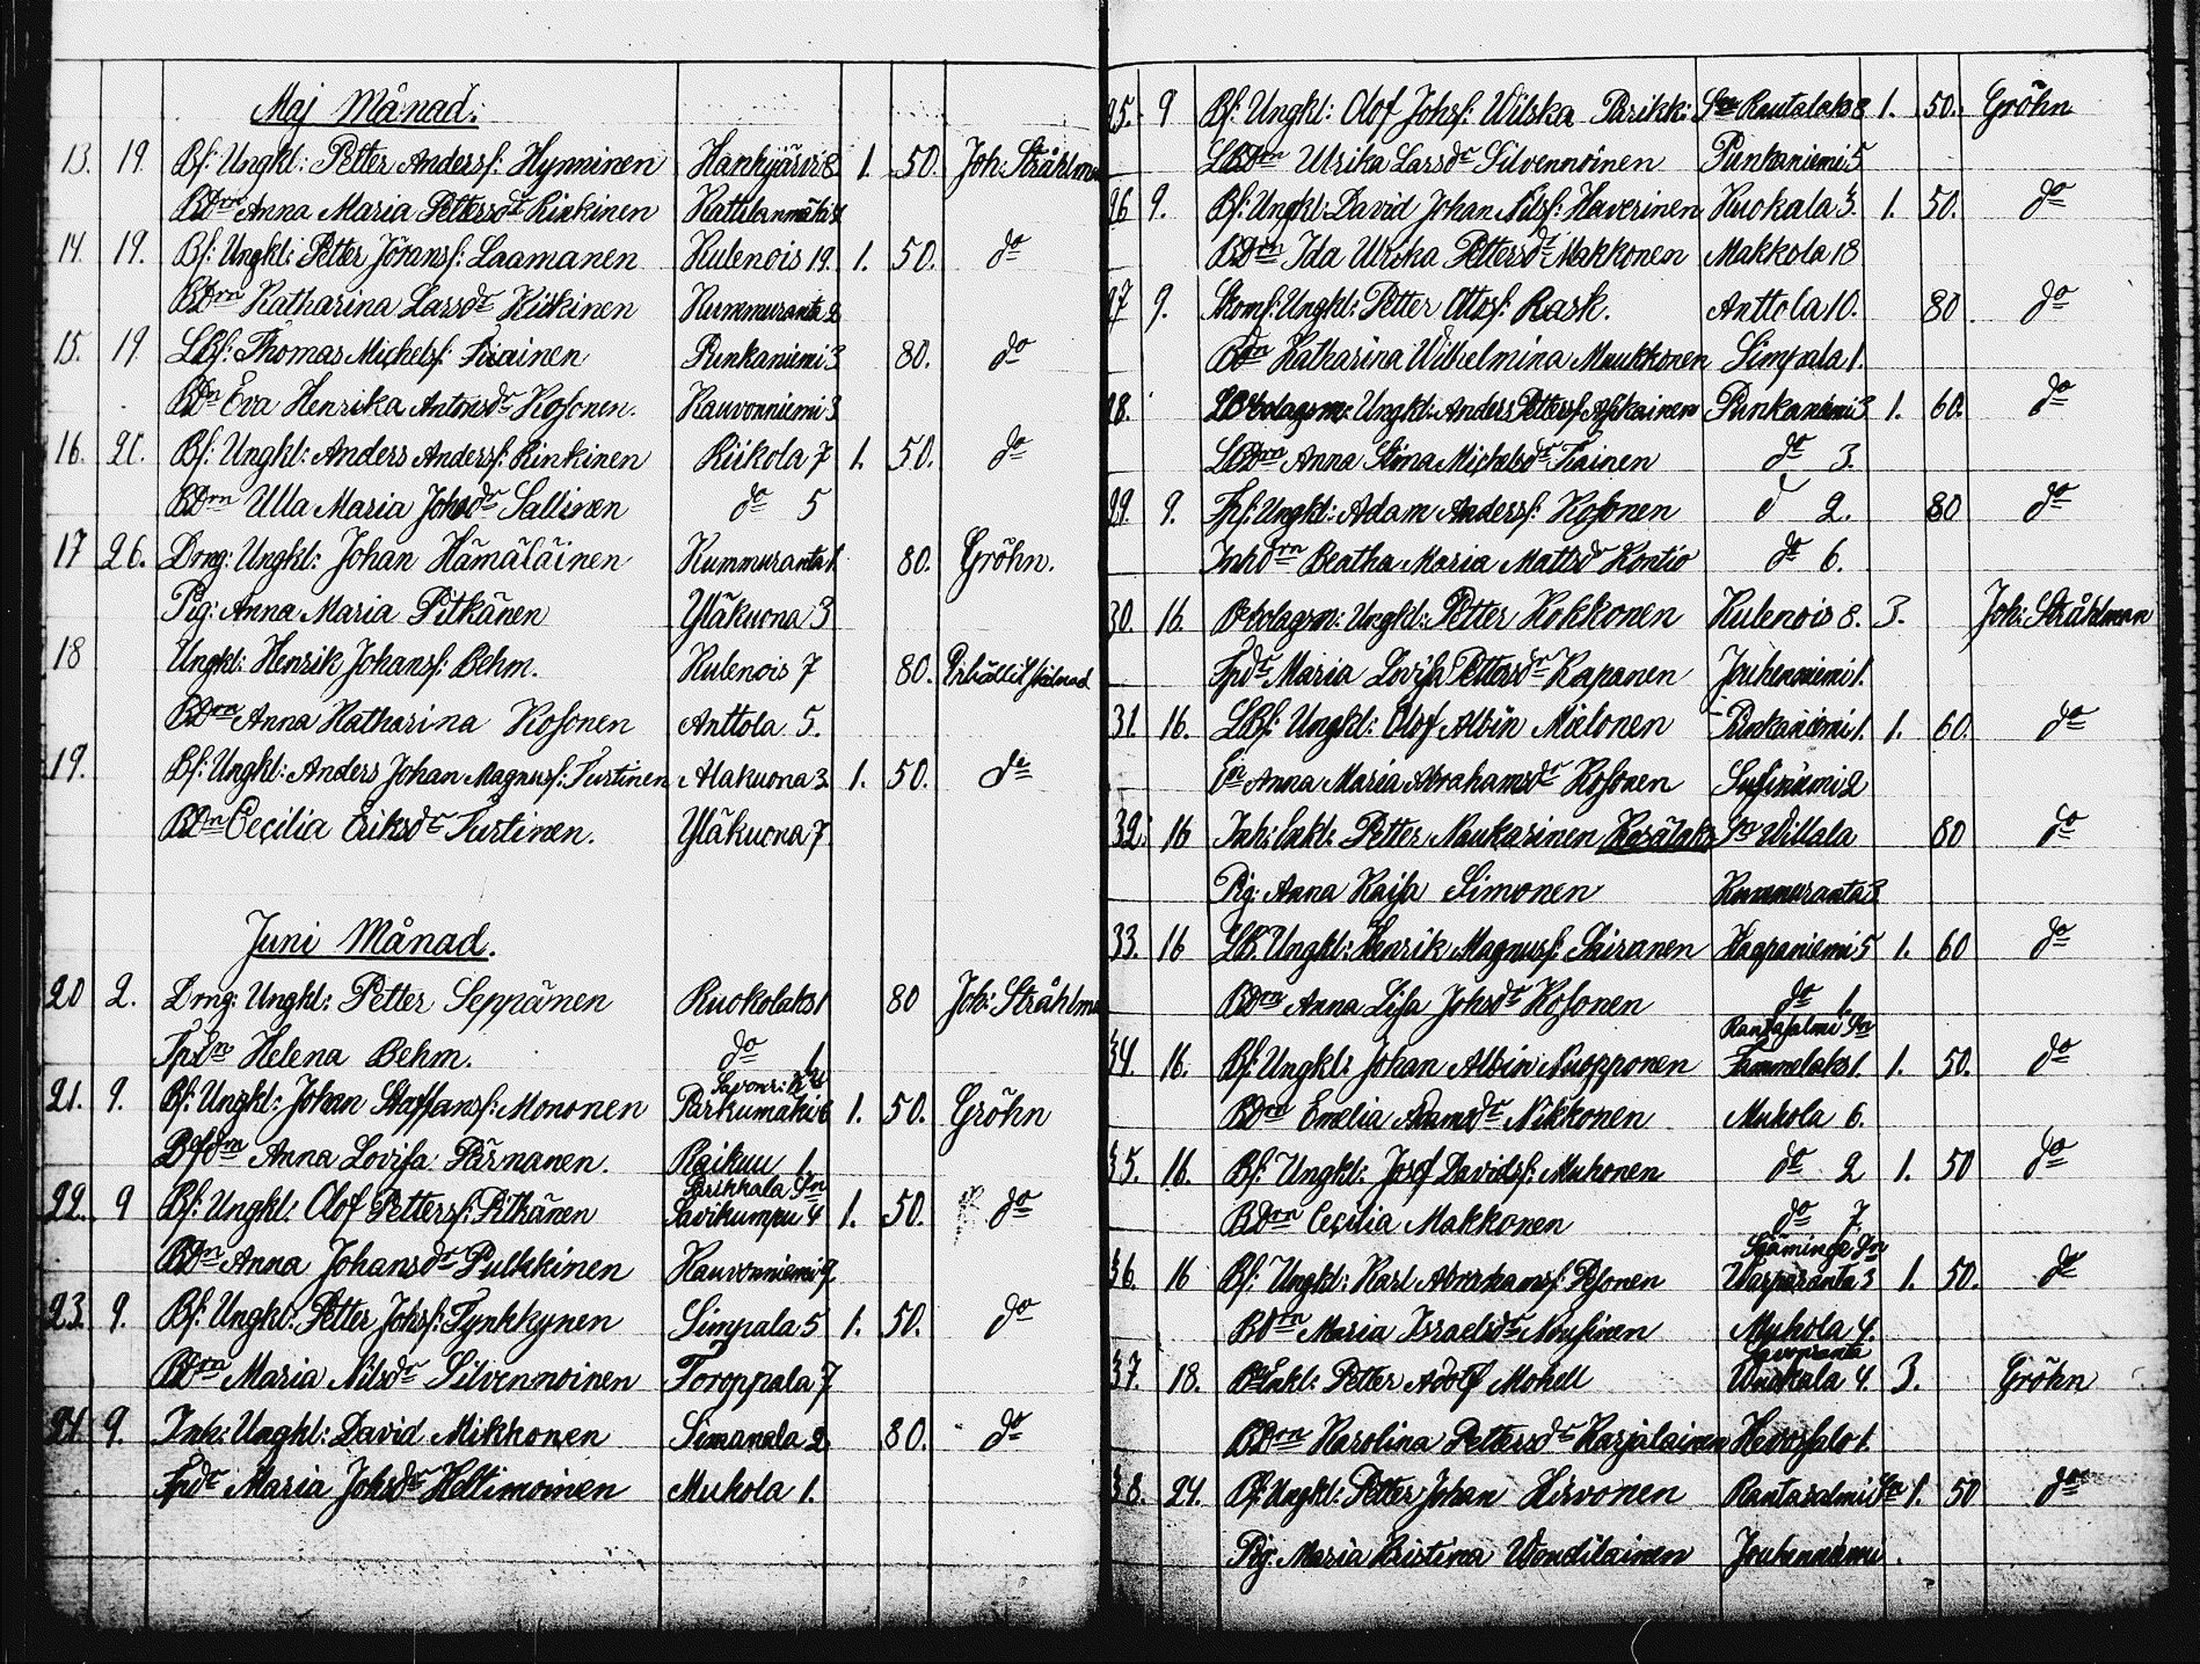 Maj Månad:
13. 19. Bf: Ungkl: Petter Anderss: Hynninen Hanhijärvi 8 1. 50. Joh: Stråhlman
BDrn Anna Maria Pettersdr Rinkinen Kattilanmäki
14. 19. Bf: Ungkl: Petter Göransf: Laamanen Kulenois 19. 1. 50. do
BDrn Katharina Larsdr Kiiskinen Kummuranta 2
15. 19 LBf: Thomas Michelsf: Tiainen Punkaniemi 3 80. do
BDn Eva Henrika Antonsdr Kosonen. Kauvonniemi 3
16. 20. Bf: Ungkl: Anders Anderss: Rinkinen Riikola 7 1. 50. do
BDrn Ulla Maria Johsdr Sallinen do 5
17 26. Drng: Ungkl: Johan Hämäläinen Kummuranta 1. 80. Gröhn.
Pig: Anna Maria Pitkänen Yläkuona 3
18 Ungkl: Henrik Johansf: Behm. Kulenois 7 80.
BDrn Anna Katharina Kosonen Anttola 5.
19. Bf: Ungkl: Anders Johan Magnusf: Turtinen Alakuona 3. 1. 50. do
BDn Cecilia Eriksdr Turtinen. Yläkuona 7
Juni Månad.
20 2. Drng: Ungkl: Petter Seppänen Ruokolaks 1 80 Joh: Stråhlman
Helena Behm. do 1.
21. 9. Bf: Ungkl: Johan Staffansf: Mononen Parkumäki 6 1. 50. Gröhn
Anna Lovisa Pärnanen. Raikuu 1.
Parikkala Sn
22. 9 Bf: Ungkl: Olof Pettersf: Pitkänen Savikumpu 4 1. 50. do
BDn Anna Johansdr Pulkkinen Kauvonniemi 9.
23. 9. Bf: Ungkl: Petter Johsf: Tynkkynen Simpala 5 1. 50. do
BDrn Maria Nilsdr Silvennoinen Toroppala 7
24. 9. Inh: Ungkl: David Mikkonen Simanala 2 80. do
Tpdr Maria Johsdr Heltimoinen Muhola 1.
25. 9 Bf: Ungkl: Olof Johsf: Wilska Parikk: Sn Rautalaks 8 1. 50. Gröhn
LBDrn Ulrika Larsdr Silvennoinen Punkaniemi 5
26 9. Bf: Ungkl: David Johan Nilsf: Haverinen Kuokala 3. 1. 50. do
BDrn Ida Ulrika Pettersdr Makkonen Makkola 18
27 9. Skomf: Ungkl: Petter Ottosf: Rask. Anttola 10. 80. do
BDn Katharina Wilhelmina Muukkonen Simpala 1.
28. LBbolagsm: Ungkl: Anders Pettersf: Punkaniemi 3 1. 60. do
LBDrn Anna Stina Michelsdr Tiainen do 3.
29. 9. Tpf: Ungkl: Adam Anderss: Kosonen d 2. 80 do
Inhdrn Beatha Maria Mattsdr Kontio do 6.
30. 16. Bbolagsm: Ungkl: Petter Kokkonen Kulenois 8. 3. Joh: Stråhlman
Tpdr Maria Lovisa Pettersdr Kapanen Jouhenniemi 1.
31. 16. LBf: Ungkl: Olof Albin Mielonen Punkaniemi 1. 1. 60. do
Anna Maria Abrahamsdr Kosonen Susiniemi 2
32. 16 Inh: Enkl: Petter Naukarinen Kesälaks Sn Willala 80 do
Pig: Anna Kaisa Simonen Kummuranta 3
33. 16 LB. Ungkl: Henrik Magnusf: Sairanen Haapaniemi 5 1. 60 do
BDrn Anna Lisa Johsdr Kosonen do 1.
Rantasalmi Sn
34. 16. Bf: Ungkl: Johan Albin Nuopponen Tammelaks 1. 1. 50. do
BDrn Emelia Adamsdr Nikkonen Muhola 6.
35. 16. Bf: Ungkl: Josef Davidsf: Muhonen do 2 1. 50 do
BDrn Cecilia Makkonen do 7.
Sääminge Sn
36. 16 Bf: Ungkl: Karl Abrahamsf: Pesonen Warparanta 3 1. 50. do
BDrn Maria Israelsdr Nousinen Muhola 4.
Savonranta
37. 18. Enkl: Petter Adolf Mohell Wuokala 4. 3. Gröhn
BDrn Karolina Pettersdr Karjalainen Hevossalo 1.
38. 24. Bf: Ungkl: Petter Johan Hirvonen Rantasalmi Sn 1. 50 do
Pig: Maria Kristina Wendilainen Jouhenniemi.